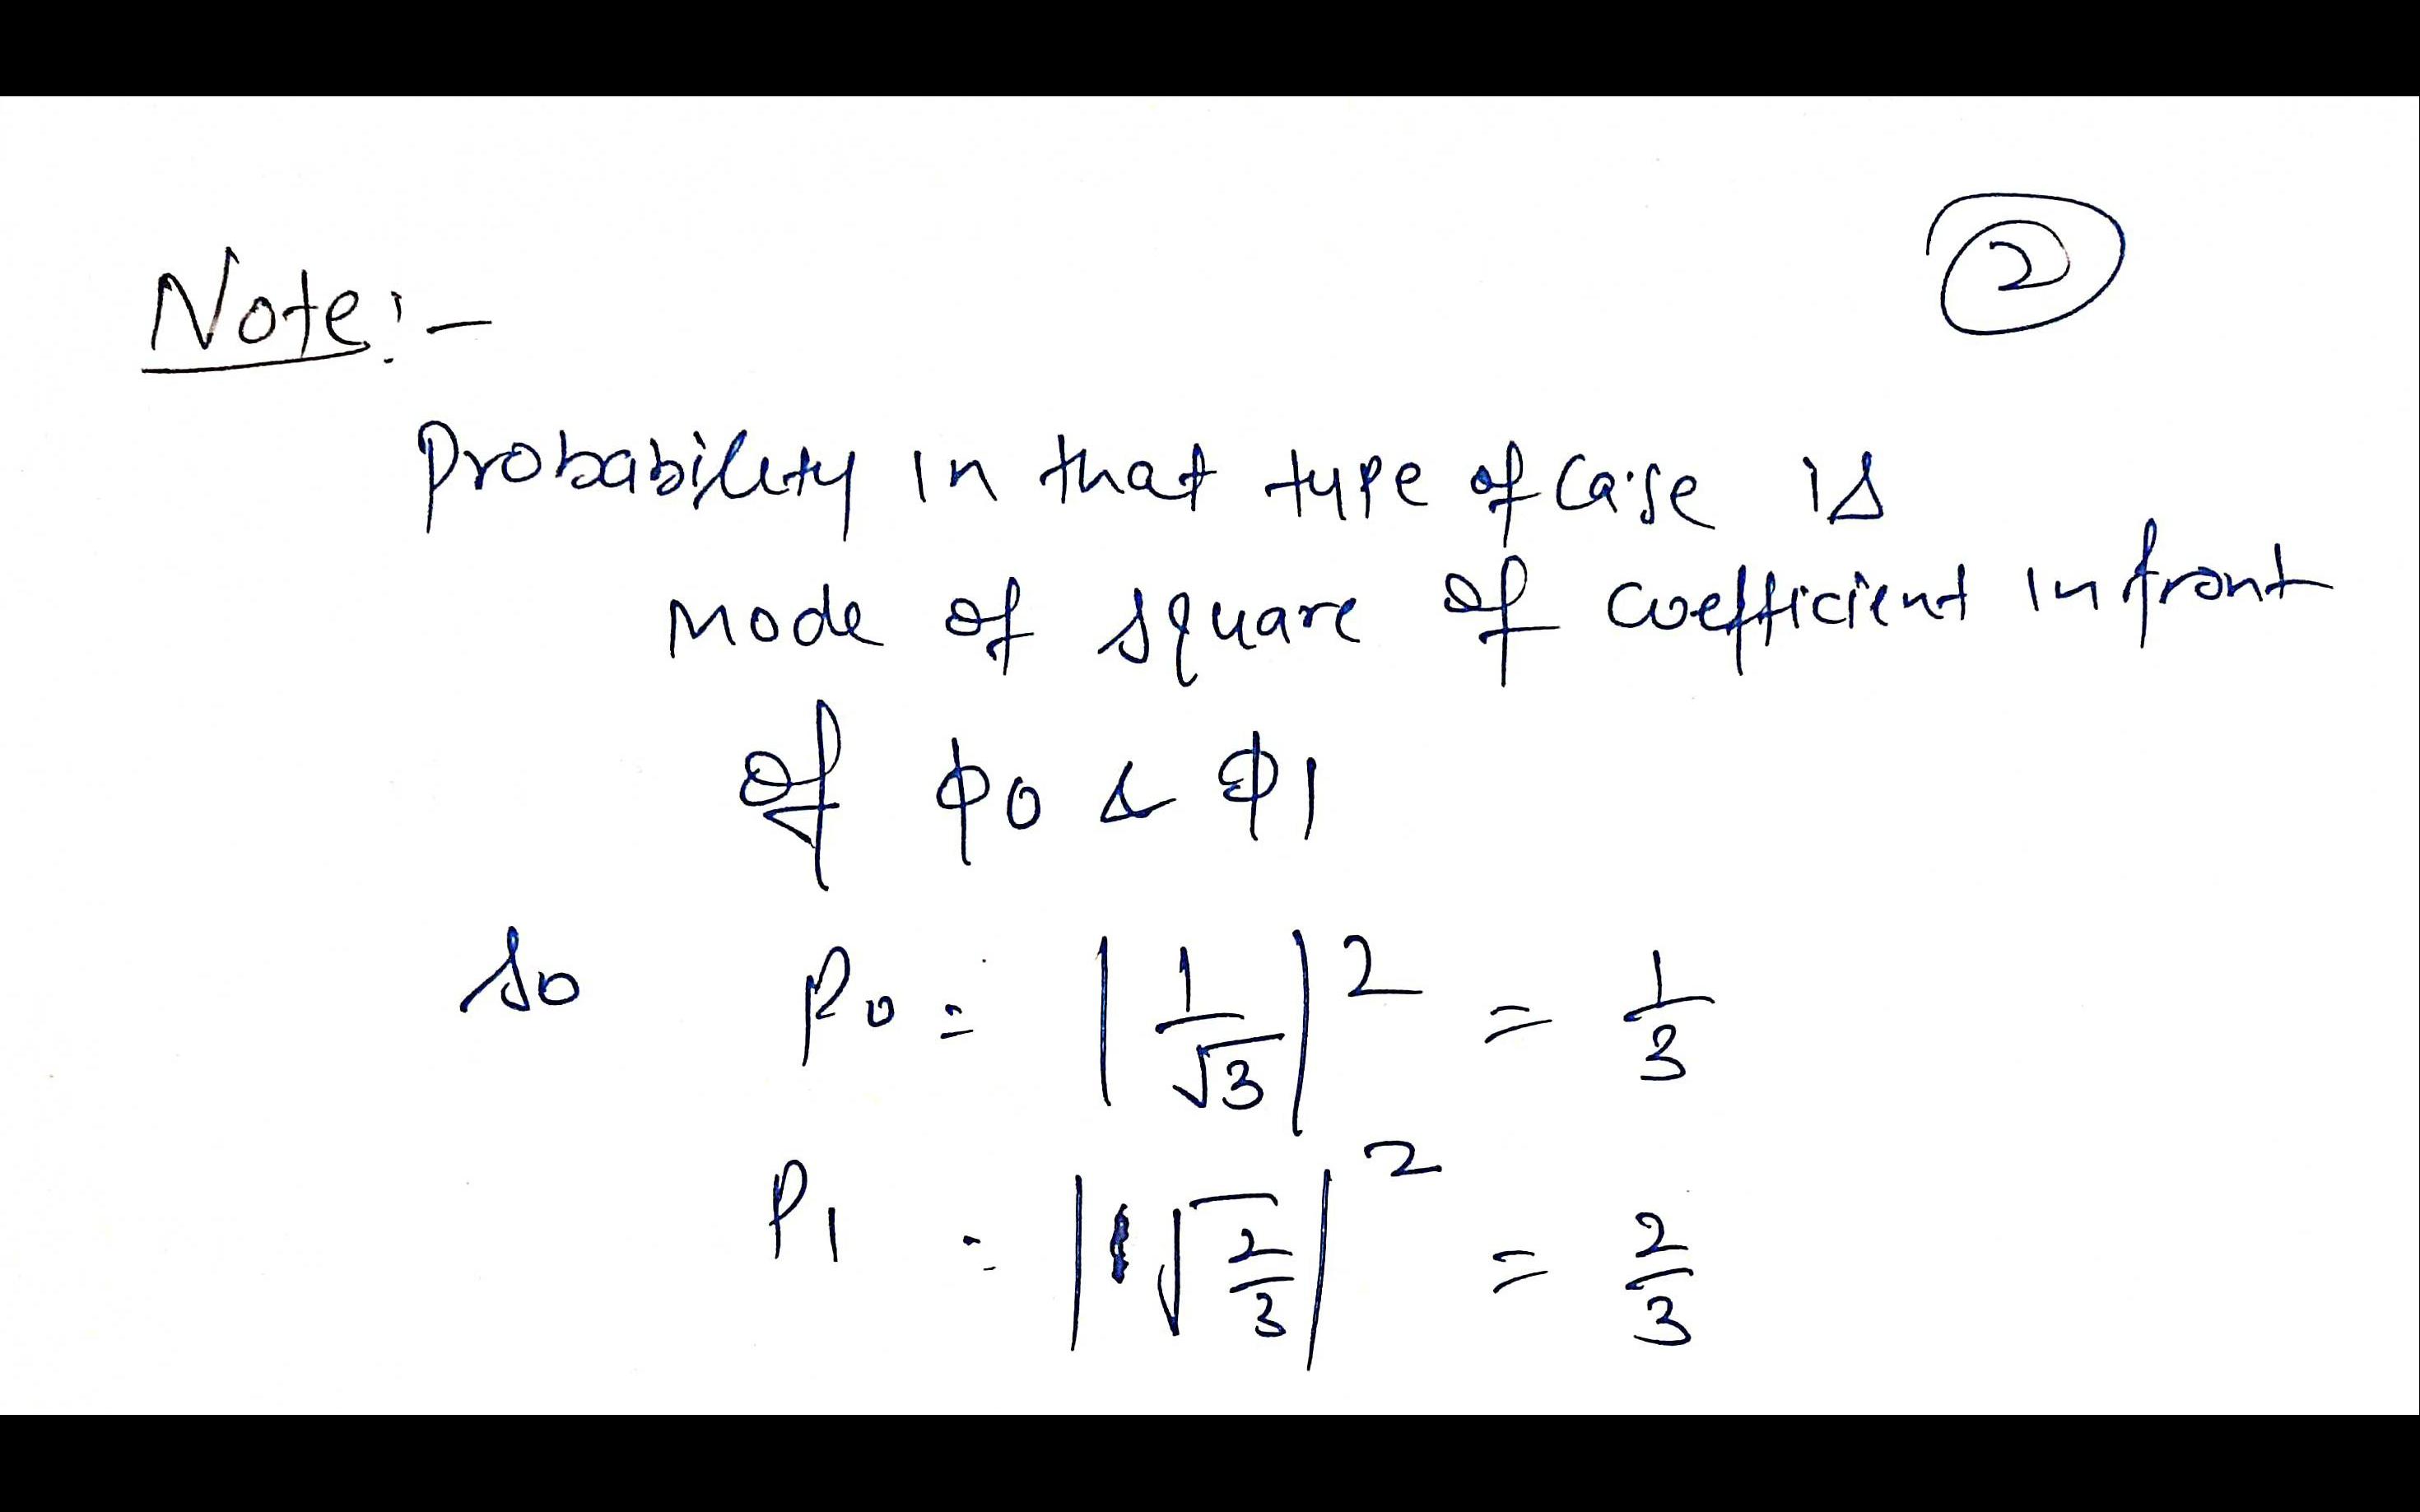 ②
Note:-
Probability in that type of case is
Mode of square of coefficient in front
of φ0 & φ1
so P0 = |1/√3|² = 1/3
P1 = |√(2/3)|² = 2/3